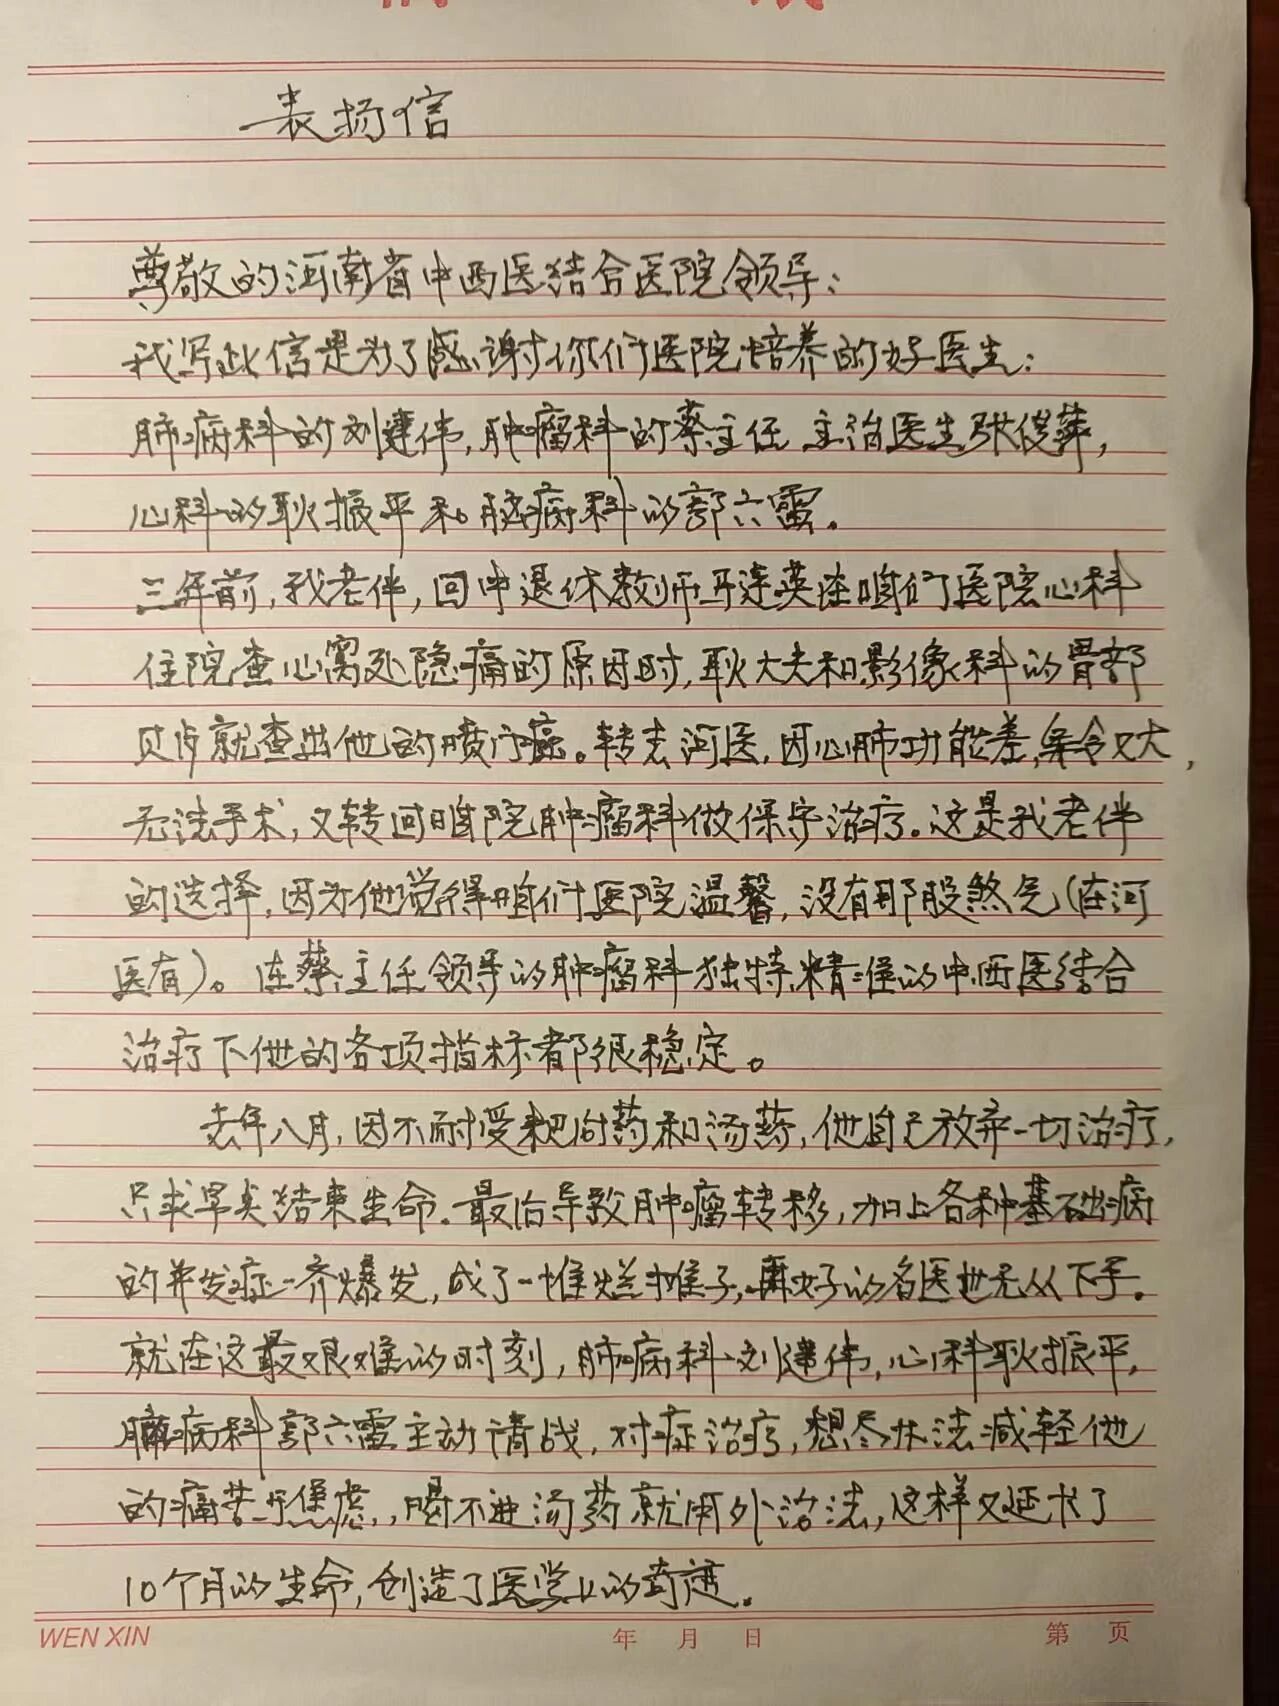 表扬信
尊敬的河南省中西医结合医院领导：
我写此信是为了感谢你们医院培养的好医生：
肺病科的刘建伟，肿瘤科的蔡主任 主治医生张俊萍，
心科的耿振平和脑病科的郭六雷。
三年前，我老伴，回中退休教师马连英住咱们医院心科
住院查心窝处隐痛的原因时，耿大夫和影像科的胃部
就查出他的喷门癌。转去河医，因心肺功能差，年令又大，
无法手术，又转回咱院肿瘤科做保守治疗。这是我老伴
的选择，因为他觉得咱们医院温馨，没有那股煞气（在河
医有）。在蔡主任领导的肿瘤科独特精准的中西医结合
治疗下他的各项指标都很稳定。
去年八月，因不耐受靶向药和汤药，他自己放弃一切治疗，
只求早点结束生命。最后导致肿瘤转移，加上各种基础病
的并发症一齐爆发，成了一堆烂摊子，再好的名医也无从下手。
就在这最艰难的时刻，肺病科刘建伟，心科耿振平，
脑病科郭六雷主动请战，对症治疗，想尽办法减轻他
的痛苦与焦虑，喝不进汤药就用外治法，这样又延长了
10个月的生命，创造了医学上的奇迹。
WEN XIN
年 月 日
第 页